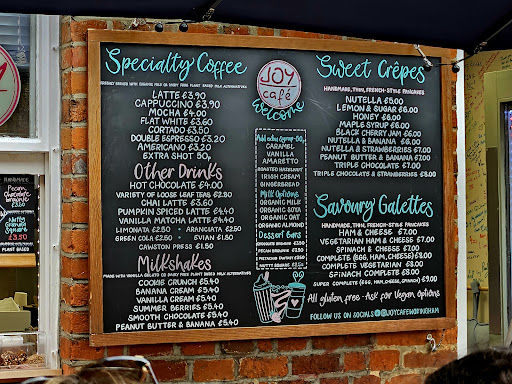 Specialty Coffee
FRESHLY BREWED WITH ORGANIC MILK OR DAIRY FREE PLANT BASED MILK ALTERNATIVES
LATTE £3.90
CAPPUCCINO £3.90
MOCHA £4.00
FLAT WHITE £3.60
CORTADO £3.50
DOUBLE ESPRESSO £3.20
AMERICANO £3.20
EXTRA SHOT 50p
Other Drinks
HOT CHOCOLATE £4.00
VARIETY OF LOOSE LEAF TEAS £2.80
CHAI LATTE £3.60
PUMPKIN SPICED LATTE £4.40
VANILLA MATCHA LATTE £4.40
LIMONATA £2.50 • ARANCIATA £2.50
GREEN COLA £2.50 • EVIAN £1.80
CAWSTON PRESS £1.80
Milkshakes
MADE WITH VANILLA GELATO OR DAIRY FREE PLANT BASED MILK ALTERNATIVES
COOKIE CRUNCH £5.40
BANANA CREAM £5.40
VANILLA CREAM £5.40
SUMMER BERRIES £5.40
SMOOTH CHOCOLATE £5.40
PEANUT BUTTER & BANANA £5.40
JOY
café
Welcome
CARAMEL
VANILLA
AMARETTO
ROASTED HAZELNUT
IRISH CREAM
GINGERBREAD
Milk Options
ORGANIC MILK
ORGANIC SOYA
ORGANIC OAT
ORGANIC ALMOND
Dessert Bars
Sweet Crêpes
HANDMADE, THIN, FRENCH-STYLE PANCAKES
NUTELLA £6.00
LEMON & SUGAR £6.00
HONEY £6.00
MAPLE SYRUP £6.00
BLACK CHERRY JAM £6.00
NUTELLA & BANANA £7.00
NUTELLA & STRAWBERRIES £7.00
PEANUT BUTTER & BANANA £7.00
TRIPLE CHOCOLATE £7.00
TRIPLE CHOCOLATE & STRAWBERRIES £8.00
Savoury Galettes
HANDMADE, THIN, FRENCH-STYLE PANCAKES
HAM & CHEESE £7.00
VEGETARIAN HAM & CHEESE £7.00
SPINACH & CHEESE £7.00
COMPLETE (EGG, HAM, CHEESE) £8.00
COMPLETE VEGETARIAN £8.00
SPINACH COMPLETE £8.00
SUPER COMPLETE (EGG, HAM, CHEESE, SPINACH) £9.00
All gluten free • Ask for Vegan options
FOLLOW US ON SOCIALS @JOYCAFEWOKINGHAM
Pecan
Chocolate
Brownie
£3.50